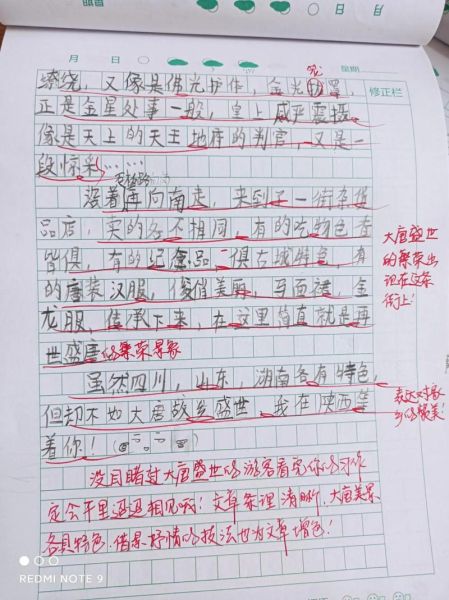 月 日
星期
修正栏
笼
绕绕，又像是佛光护作，金光罩，
正是金星处事一般，皇上威严震摄
像是天上的天王地府的判官，又是一
段惊彩……
沿着再向南走，来到了一街杂货
品店，卖的各不相同，有的吃物色香
皆俱，有的纪念品一俱古城特色，有
的唐装汉服，俊俏美丽，马面裙，金
龙服，传承下来，在这里简直就是再
世盛唐的繁荣景象
大唐盛世
的繁荣出
现在这条
街上！
虽然四川，山东，湖南各有特色，
但却不如大唐故乡盛世，我在陕西等
着你！
表达对家
乡的赞美！
没目睹过大唐盛世的游客看完你的习作
定会千里迢迢相见哦！文章条理清晰，大唐美景
各具特色，借景抒情的技法也为文章增色！
REDMI NOTE 9